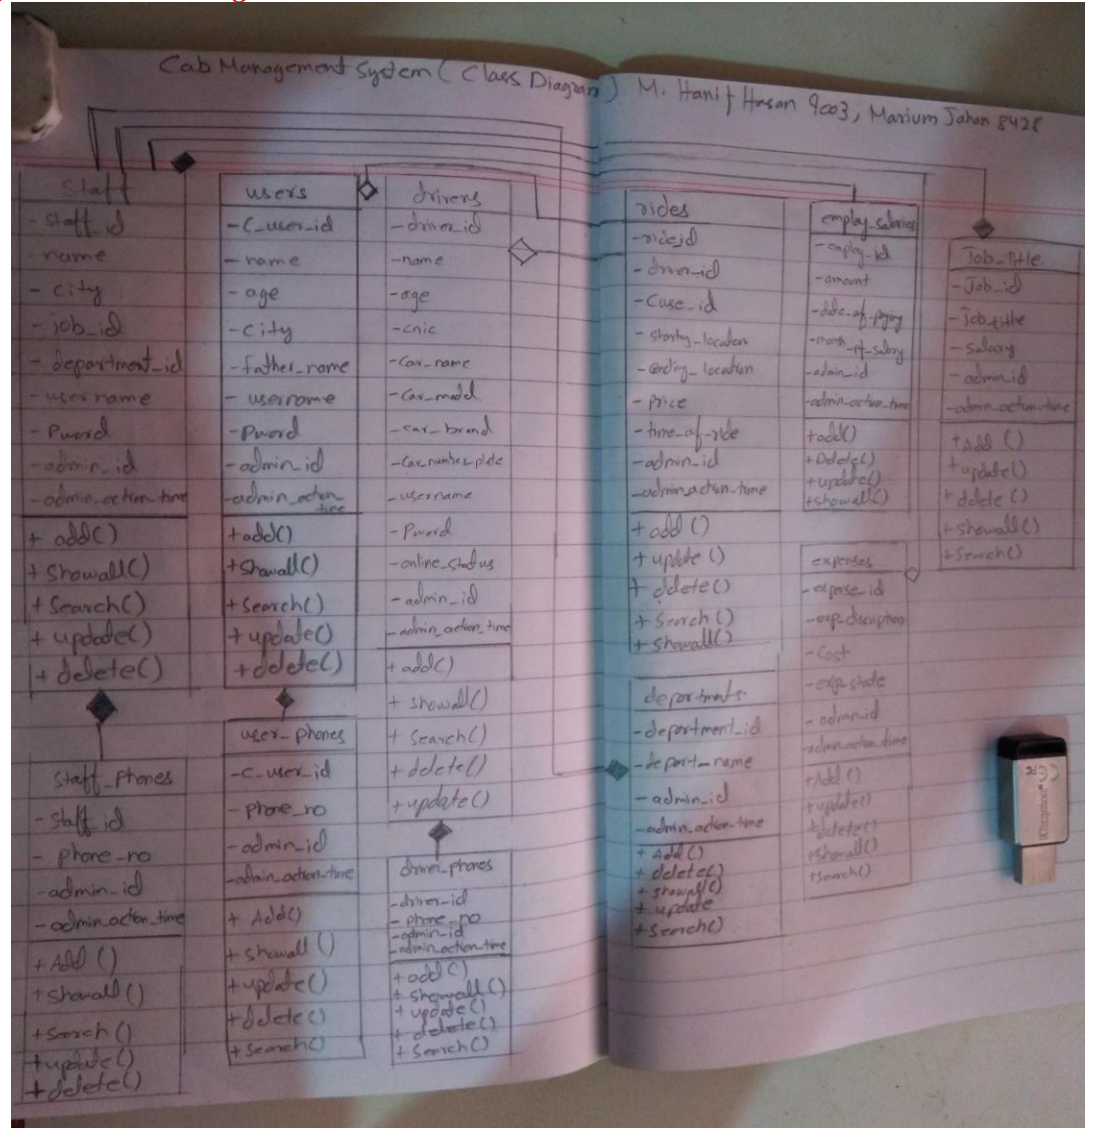 Cab Management System ( Class Diagram ) M. Hanif Hasan 9003, Marium Jahan 8428
Staff
- staff_id
- name
- city
- job_id
- department_id
- username
- Pword
- admin_id
- admin_action_time
+ add()
+ Showall()
+ Search()
+ update()
+ delete()
staff_phones
- staff_id
- phone_no
- admin_id
- admin_acton_time
+ Add ()
+ Showall ()
+ Search ()
+ update()
+ delete()
users
- C_user_id
- name
- age
- City
- father_name
- username
- Pword
- admin_id
- admin_action_
time
+ add()
+ Showall()
+ Search()
+ update()
+ delete()
user_phones
- C_user_id
- phone_no
- admin_id
- admin_action_time
+ Add()
+ Showall ()
+ update()
+ delete()
+ Search()
drivers
- driver_id
- name
- age
- cnic
- Car_name
- Car_model
- car_brand
- Car_number_plate
- username
- Pword
- online_status
- admin_id
- admin_action_time
+ add()
+ showall()
+ Search()
+ delete()
+ update()
driver_phones
- driver_id
- phone_no
- admin_id
- admin_action_time
+ add()
+ showall()
+ update()
+ delete()
+ Search()
rides
- rideid
- driver_id
- Cuse_id
- starting_location
- ending_location
- Price
- time_of_ride
- admin_id
- admin_action_time
+ add ()
+ update ()
+ delete()
+ Search()
+ Showall()
departments
- department_id
- depart_name
- admin_id
- admin_action_time
+ Add()
+ delete()
+ showall()
+ update
+ Search()
employ_salaries
- employ_id
- amount
- date_of_paying
- month_of_salary
- admin_id
- admin_action_time
+ add()
+ Delete()
+ update()
+ showall()
expenses
- expense_id
- exp_discription
- Cost
- admin_id
- admin_action_time
+ Add ()
+ update()
+ delete()
+ Showall()
+ Search()
Job_title
- Job_id
- job_title
- Salary
- admin_id
- admin_action_time
+ Add ()
+ update()
+ delete ()
+ Showall()
+ Search()
Kingston